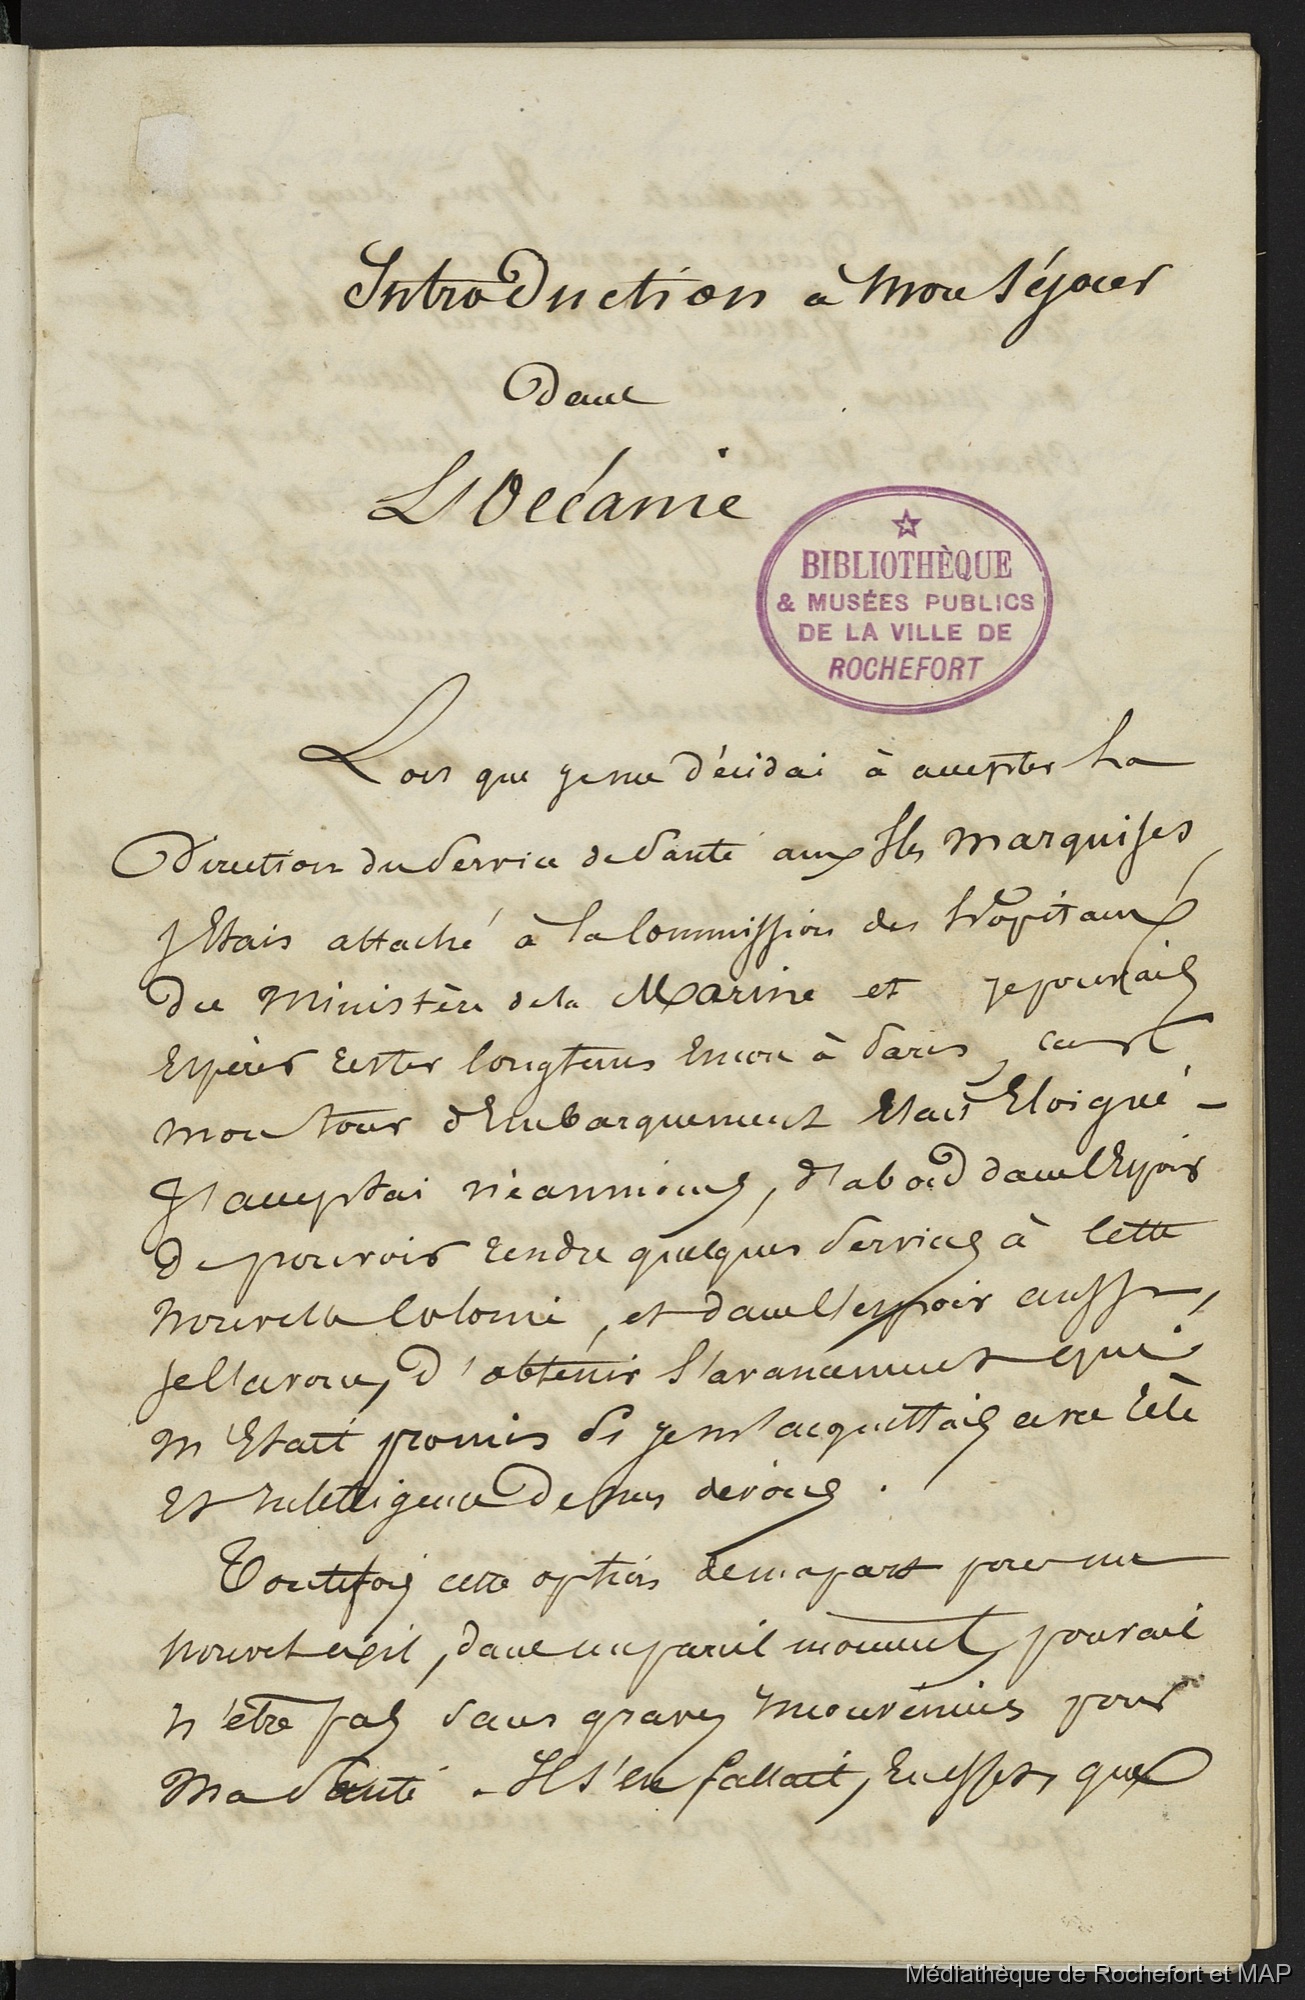 Introduction à mon séjour
Dans
L'Océanie
BIBLIOTHÈQUE
& MUSÉES PUBLICS
DE LA VILLE DE
ROCHEFORT
Lors que je me décidai à accepter La
Direction du Service de Santé aux Iles Marquises,
j'Etais attaché à la Commission des hôpitaux
Du Ministère de la Marine et je pouvais
Espérer rester longtems Encore à Paris, car
mon tour d'Embarquement Etait Eloigné -
J'acceptai néanmoins, d'abord dans l'Espoir
De pouvoir rendre quelques Services à Cette
Nouvelle Colonie, et dans l'espoir aussi,
je l'avoue, d'obtenir l'avancement qui
m'Etait promis Si je m'acquittais avec zèle
Et intelligence De mes devoirs.
Toutefois cette option de ma part pour un
nouvel exil, dans un pareil moment, pouvait
n'être pas sans graves inconvéniens pour
Ma Santé. Il s'en fallait, En effet, que
Médiathèque de Rochefort et MAP